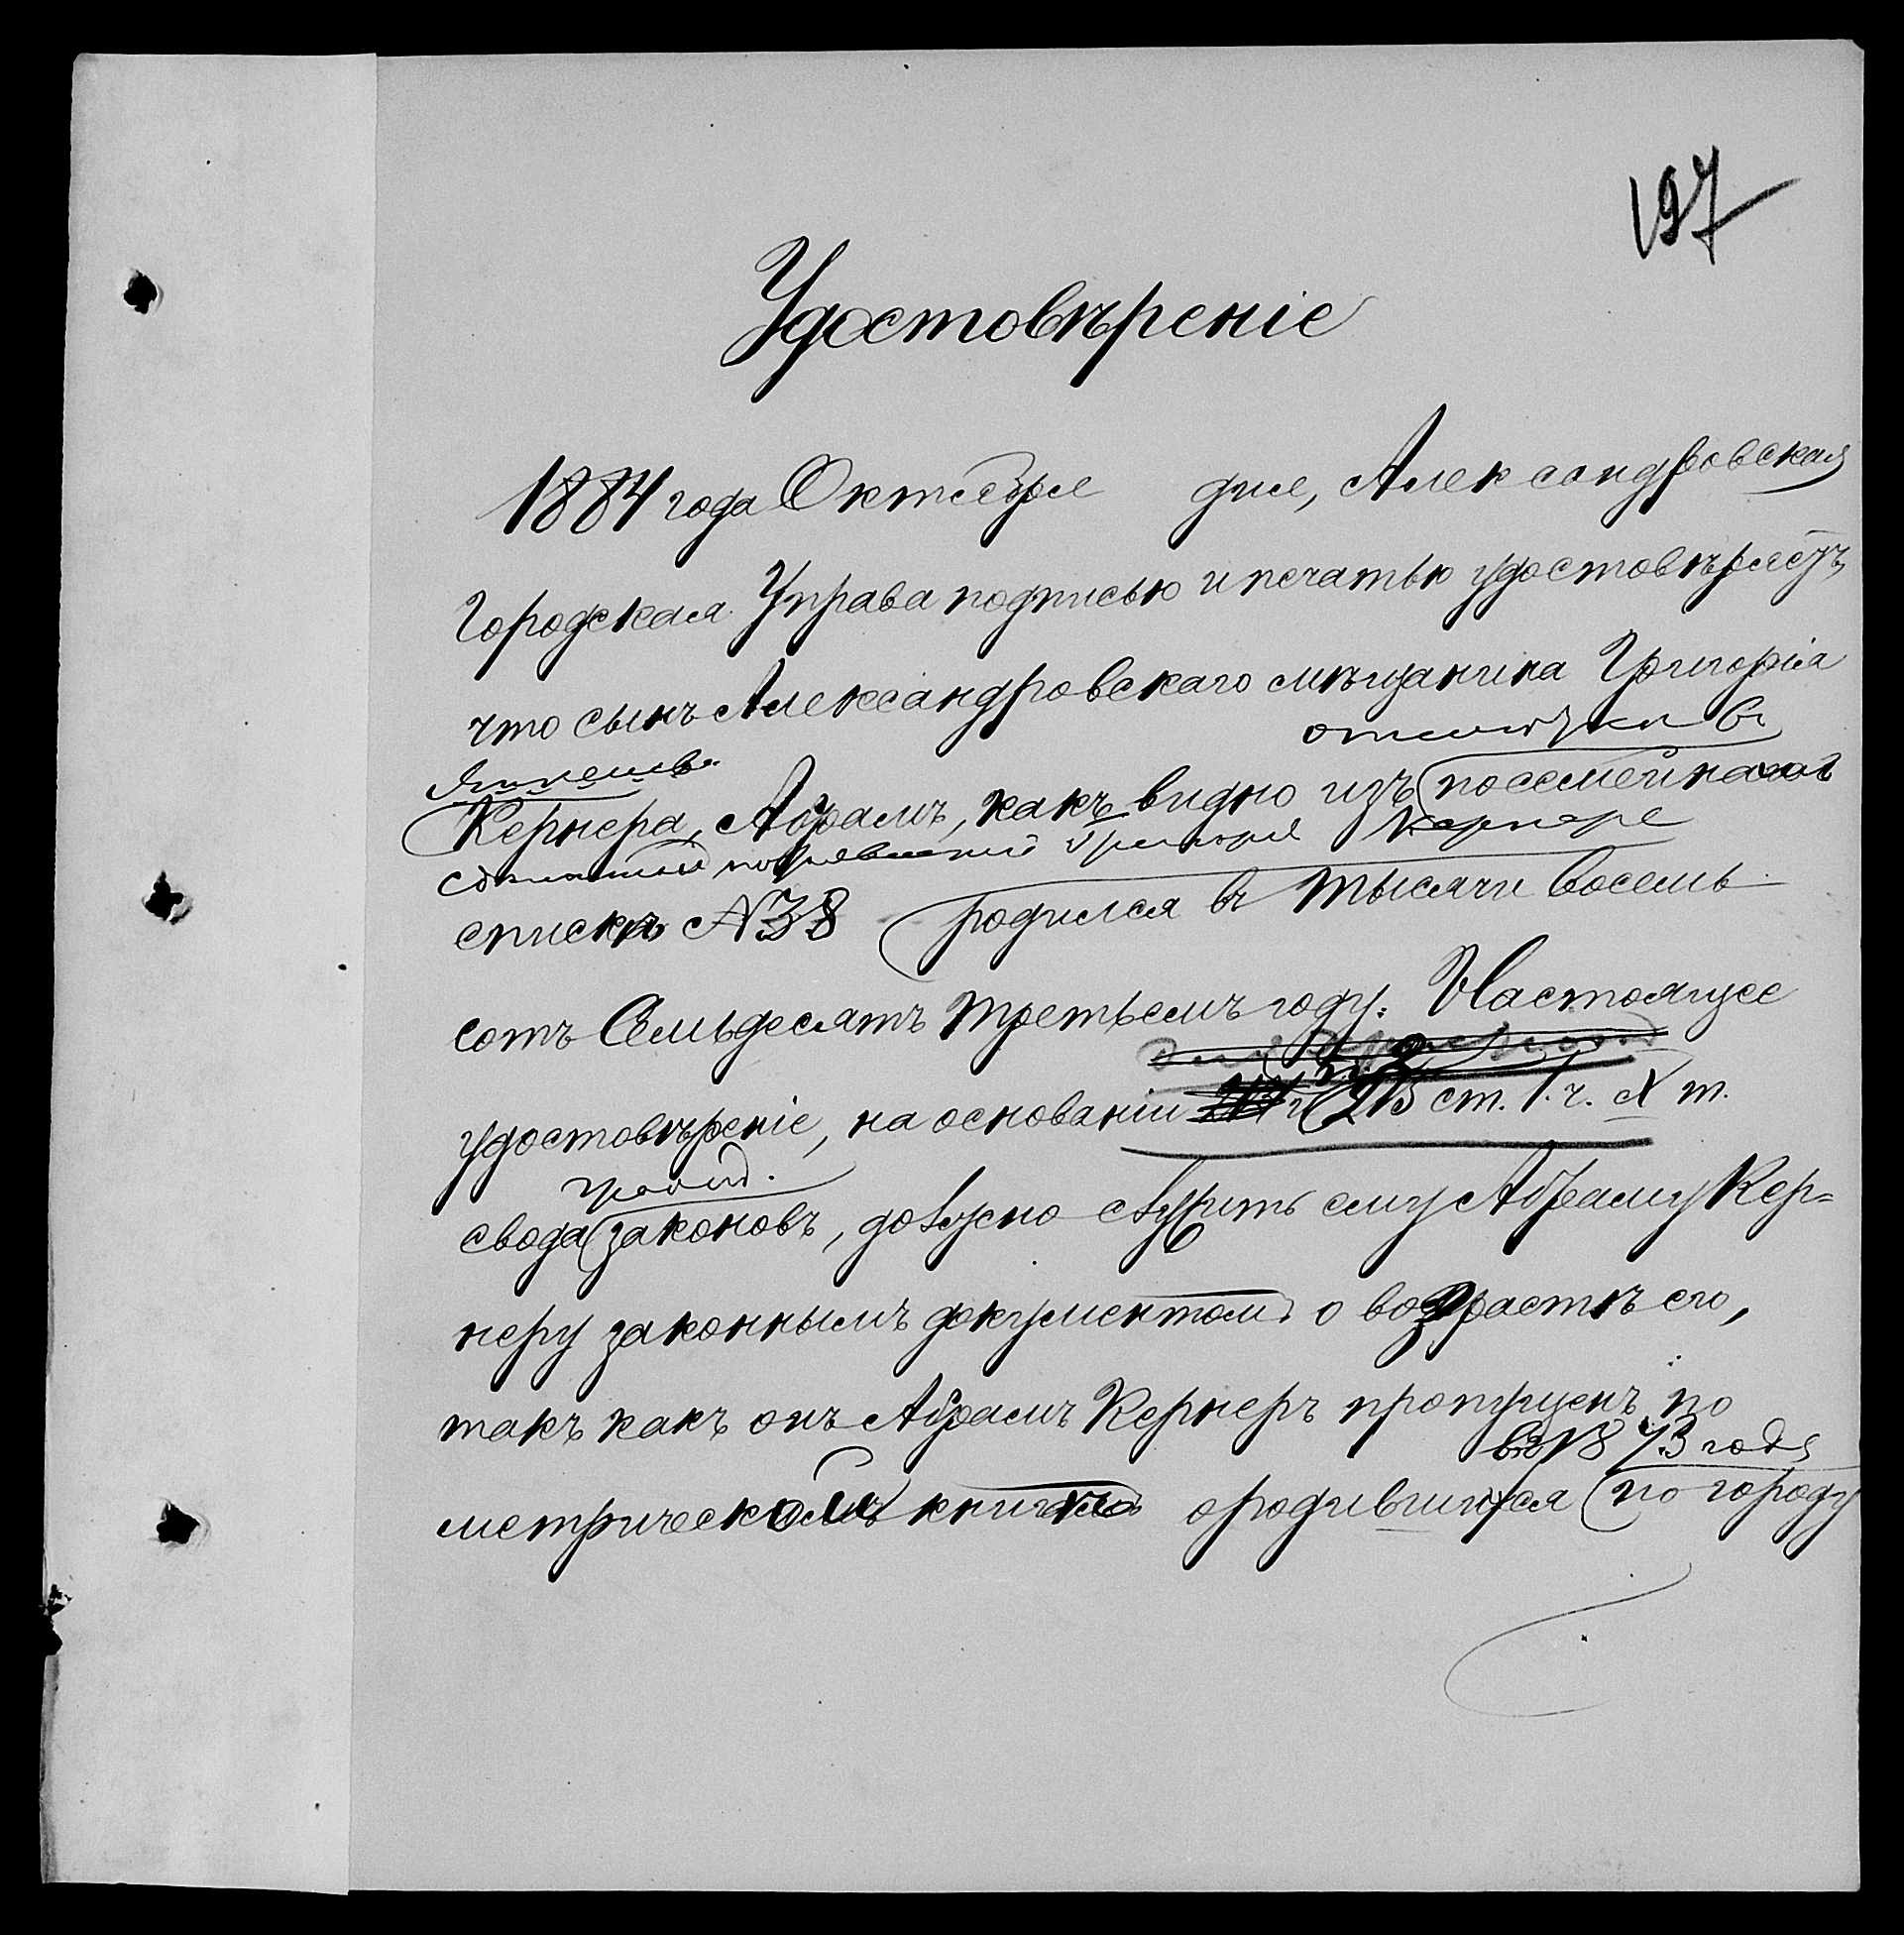 197
Удостовѣреніе
1884 года Октября дня, Александровская
Городская Управа подписью и печатью удостовѣряетъ,
что сынъ Александровскаго мѣщанина Григорія
отмѣтки въ
Кернера, Абрамъ, какъ видно изъ посемейнаго
Григорія Кернера
списка № 38 родился въ тысячи восемь
сотъ Семьдесятъ третьемъ году. Настоящее
удостовѣреніе, на основаніи 213 ст. 1. ч. X т.
гражд.
свода законовъ, должно служить ему Абраму Кер=
неру законнымъ документомъ о возрастѣ его,
такъ какъ онъ Абрамъ Кернеръ пропущенъ по
въ 1873 году
метрической книгѣ о родившихся по городу